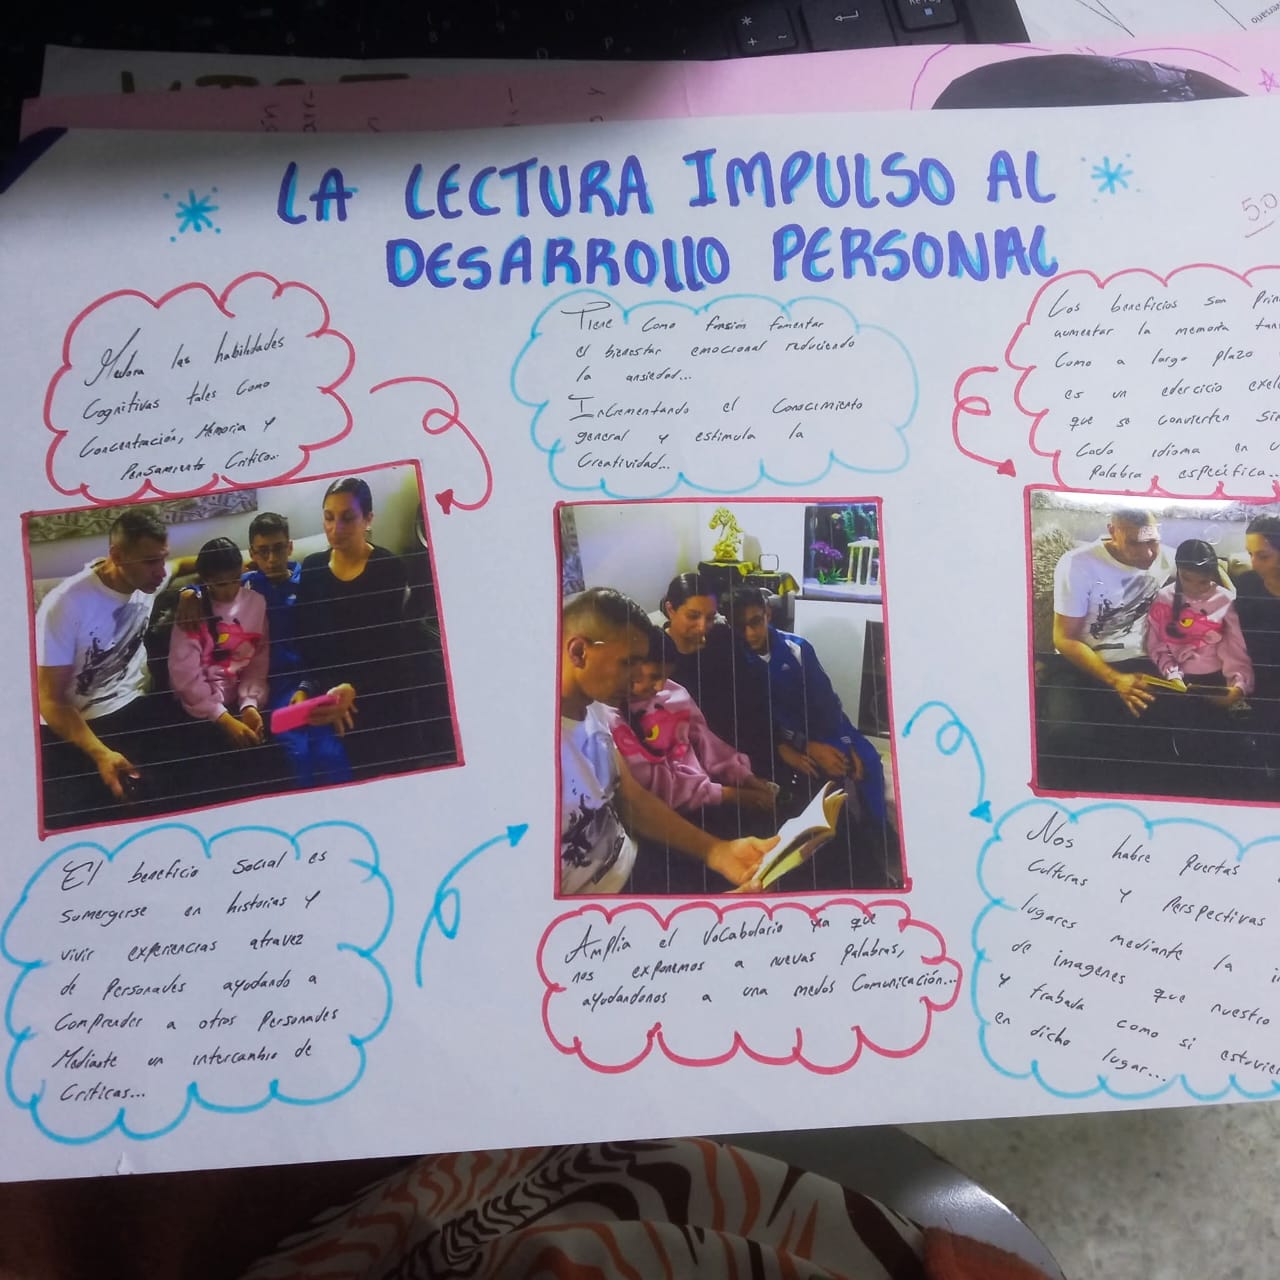 LA LECTURA IMPULSO AL
DESARROllO PERSONAL
5.0
Mejora las habilidades
Cognitivas tales como
Concentración, Memoria y
Pensamiento Critico...
Tiene Como funsión fomentar
el bienestar emocional reduciendo
la ansiedad...
Incrementando el Conocimiento
general y estimula la
Creatividad...
Los beneficios son
aumentar la memoria
Como a largo plazo
es un edercicio
que se convierten
Cada idioma en
Palabra específica...
El beneficio Social es
sumergirse en historias y
vivir experiencias atravez
de Personajes ayudando a
Comprender a otros Personajes
Mediante un intercambio de
Criticas...
Amplia el Vocabulario ya que
nos exponemos a nuevas Palabras,
ayudandonos a una mejos Comunicación...
Nos habre Puertas
Culturas y Perspectivas
lugares mediante la
de imagenes que nuestro
y trabada como si
en dicho lugar...